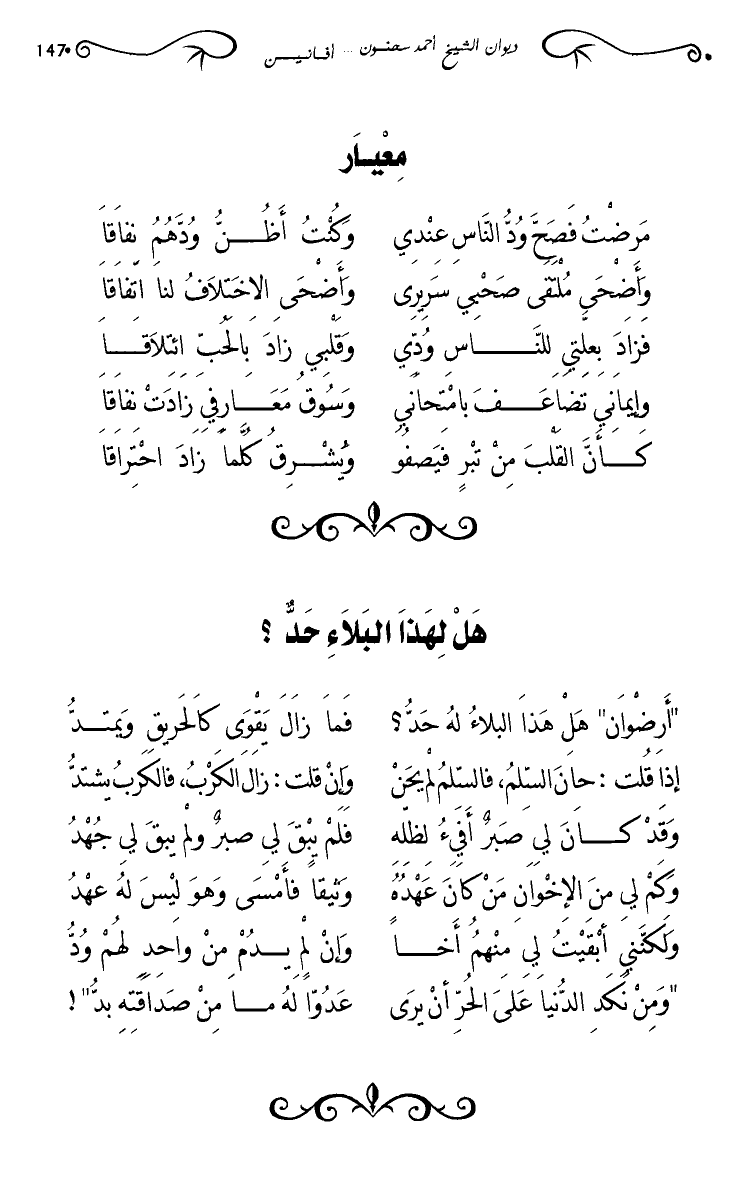 ديوان الشيخ أحمد سحنون ... أفانين 147
مِعْيَار
مَرضْتُ فَصَحَّ وُدُّ النَّاسِ عِنْدِي وَكُنْتُ أَظُنُّ وُدَّهُمُ نِفَاقَا
وَأَضْحَى مُلْتَقَى صَحْبِي سَرِيرِى وَأَضْحَى الاخْتِلاَفُ لنا اتِّفَاقَا
فَزَادَ بِعِلَّتِي لِلنَّاسِ وُدِّي وَقَلْبِي زَادَ بِالْحُبِّ ائْتِلاَقَا
وإِيمَانِي تضَاعَفَ بِامْتِحانِي وَسُوقُ مَعَارِفِي زَادَتْ نفَاقَا
كَأَنَّ القَلْبَ مِنْ تِبْرٍ فَيَصفُو وَيُشْرِقُ كُلَّمَا زَادَ احْتِرَاقَا
هَلْ لِهَذَا البَلاَءِ حَدٌّ ؟
"أَرِضْوَان" هَلْ هَذَا البلاءُ لهُ حَدُّ؟ فَمَا زَالَ يَقْوَى كالَحَرِيقِ وَيَمتدُّ
إذا قُلت : حانَ السّلمُ، فالسّلمُ لْم يَحَنْ وَإنْ قلت : زال الكَرْبُ، فالكَرْبُ يشتدُّ
وَقَدْ كَانَ لِي صَبرٌ أَفِيءُ لظلِّهِ فَلَمْ يبْقَ لِي صبرٌ ولْم يبقَ لِي جُهْدُ
وَكَمْ لِي منَ الإخْوانِ مَنْ كَانَ عَهْدُهُ وَثيقاً فأَمْسَى وَهوَ ليْسَ لهُ عهْدُ
وَلَكنَّنِي أبْقَيْتُ لِي منْهمُ أَخاً وَإنْ لْم يدُمْ مِنْ واحدٍ لهُمْ وُدُّ
"وَمِنْ نَكَدِ الدُّنيا عَلىَ الحُرِّ أنْ يرَى عَدُوّا لهُ ما مِنْ صَدَاقَتِهِ بدُّ" !